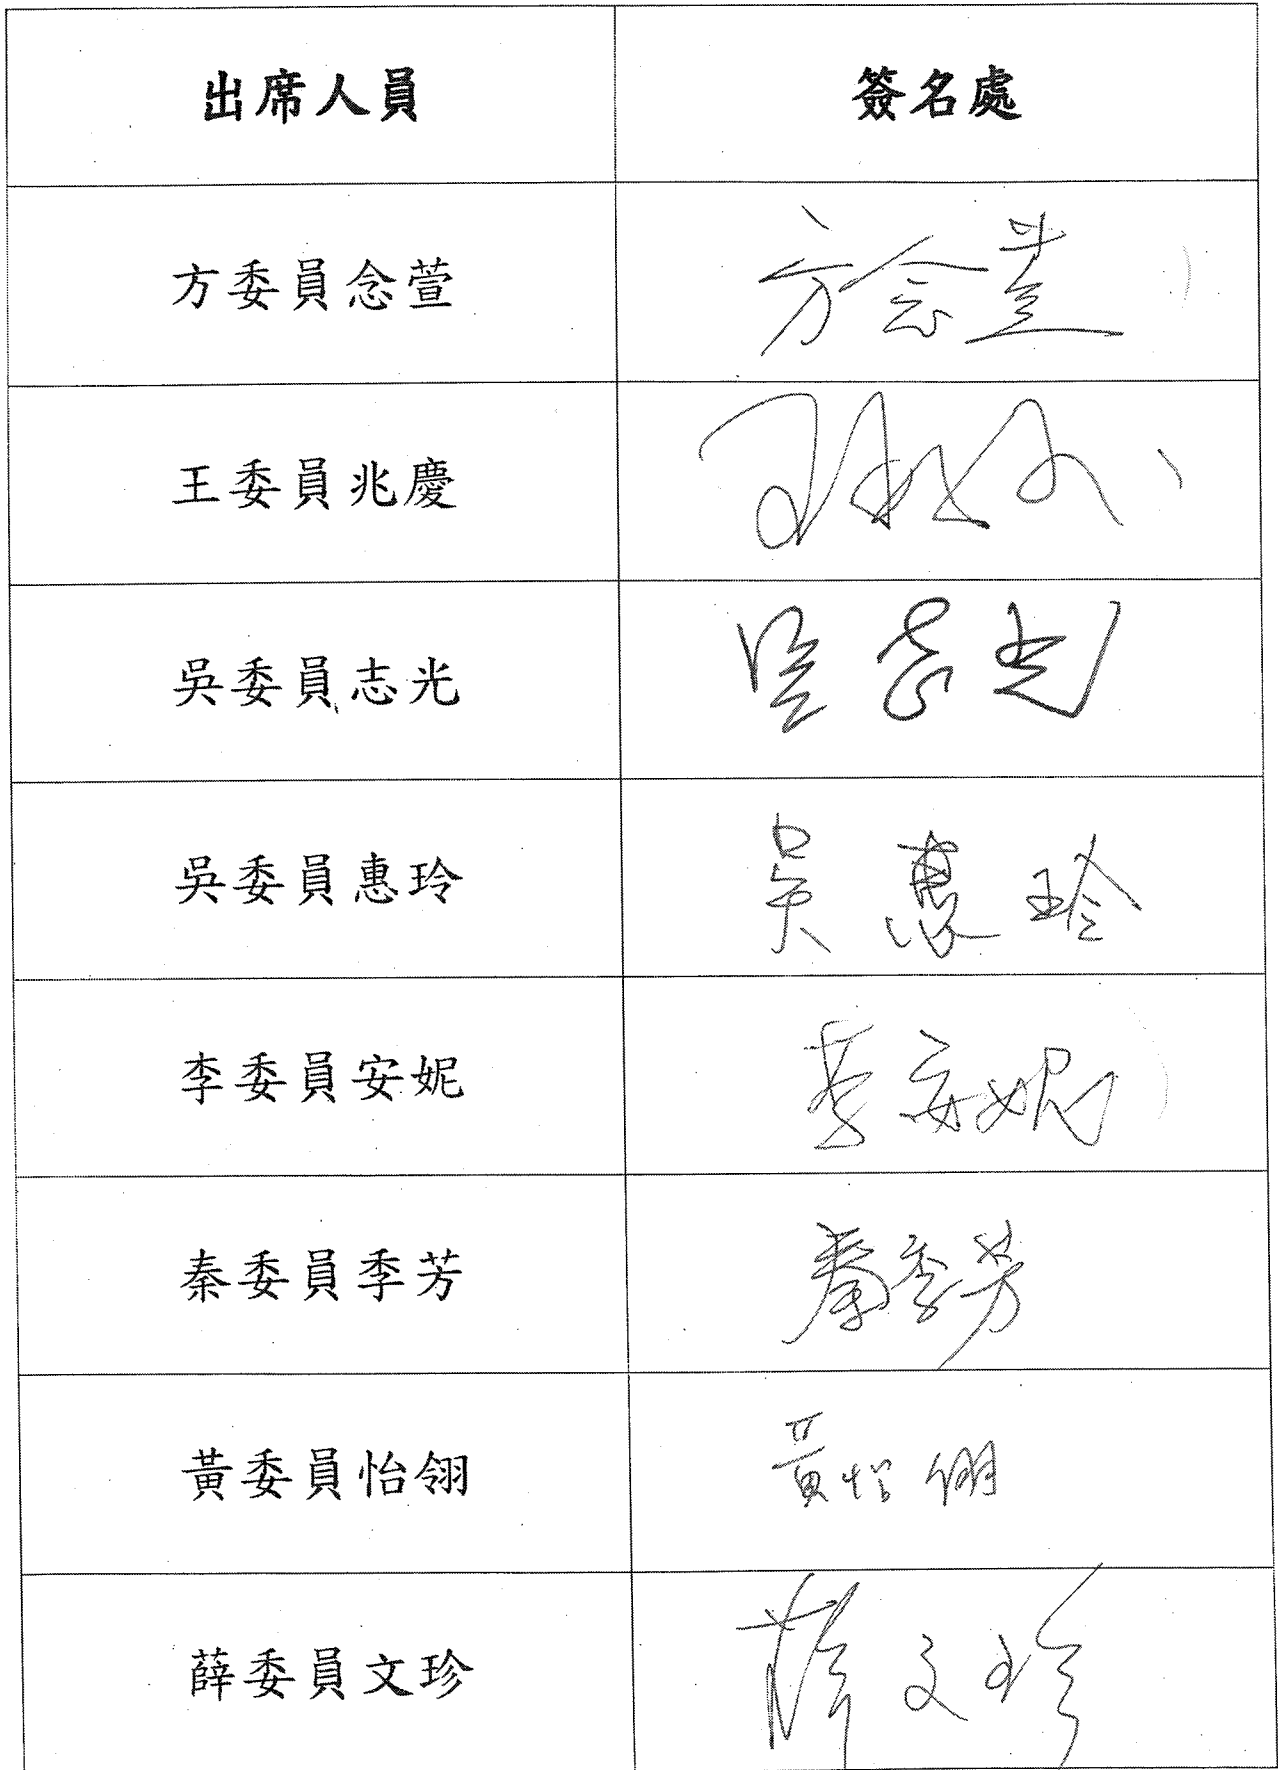 出席人員 簽名處
方委員念萱 方念萱
王委員兆慶
吳委員志光 吳志光
吳委員惠玲 吳惠玲
李委員安妮 李安妮
秦委員季芳 秦季芳
黃委員怡翎 黃怡翎
薛委員文珍 薛文珍